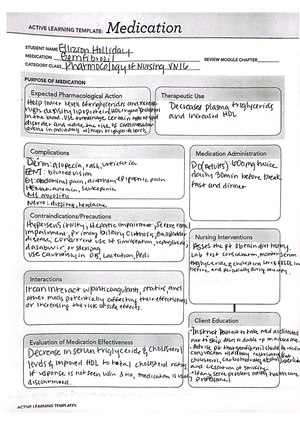 ACTIVE LEARNING TEMPLATE: Medication
STUDENT NAME Ellizion Holliday
MEDICATION Gemfibrozil
REVIEW MODULE CHAPTER
CATEGORY CLASS Pharmacology of Nursing VN16
PURPOSE OF MEDICATION
Expected Pharmacological Action
Help lower levels of triglycerides and increase
high density lipoprotein
in the blood. Use to manage certain types of lipid
disorder and reduce the risk of cardiovascular
events in individuals with high triglyceride levels.
Therapeutic Use
Decreases plasma triglycerids
and increased HDL
Complications
Derm: alopecia, rash, urticaria
EENT: blurred vision
GI: abdominal pain, diarrhea, epigastric pain
Hemat: anemia, leukopenia
MS: myositis
Neuro: dizziness, headache
Medication Administration
PO (adults) 600mg twice
daily 30min before break
fast and dinner
Contraindications/Precautions
Hypersensitivity, Hepatic impairment, severe renal
impairment, primary biliary cirrhosis, gallbladder
disease, concurrent use of simvastatin, repaglinide,
dasabuvir or selexipag
Use cautiously in OB, Lactation, Pedi
Nursing Interventions
Assess the pt obtain diet history.
Lab test consideration, monitor serum
triglyceride, & cholesterol levels
before and periodically during therapy.
Interactions
It can interact w/ anticoagulants, statins and
other meds potentially affecting their effectiveness
or increasing the risk of side effects.
Client Education
Instruct Patient to take med as directed
not to skip doses or double up on missed dose.
Advise pt that medication should be used in
conjunction w/ dietary restrictions (fat,
cholesterol, carbohydrates, alcohol), exercise
and cessation of smoking.
professional
Evaluation of Medication Effectiveness
Decrease in serum triglyceride & cholesterol
levels & improved HDL to total cholesterol ratios.
If response is not seen w/in 3 mo, medication is usually
discontinued.
ACTIVE LEARNING TEMPLATES